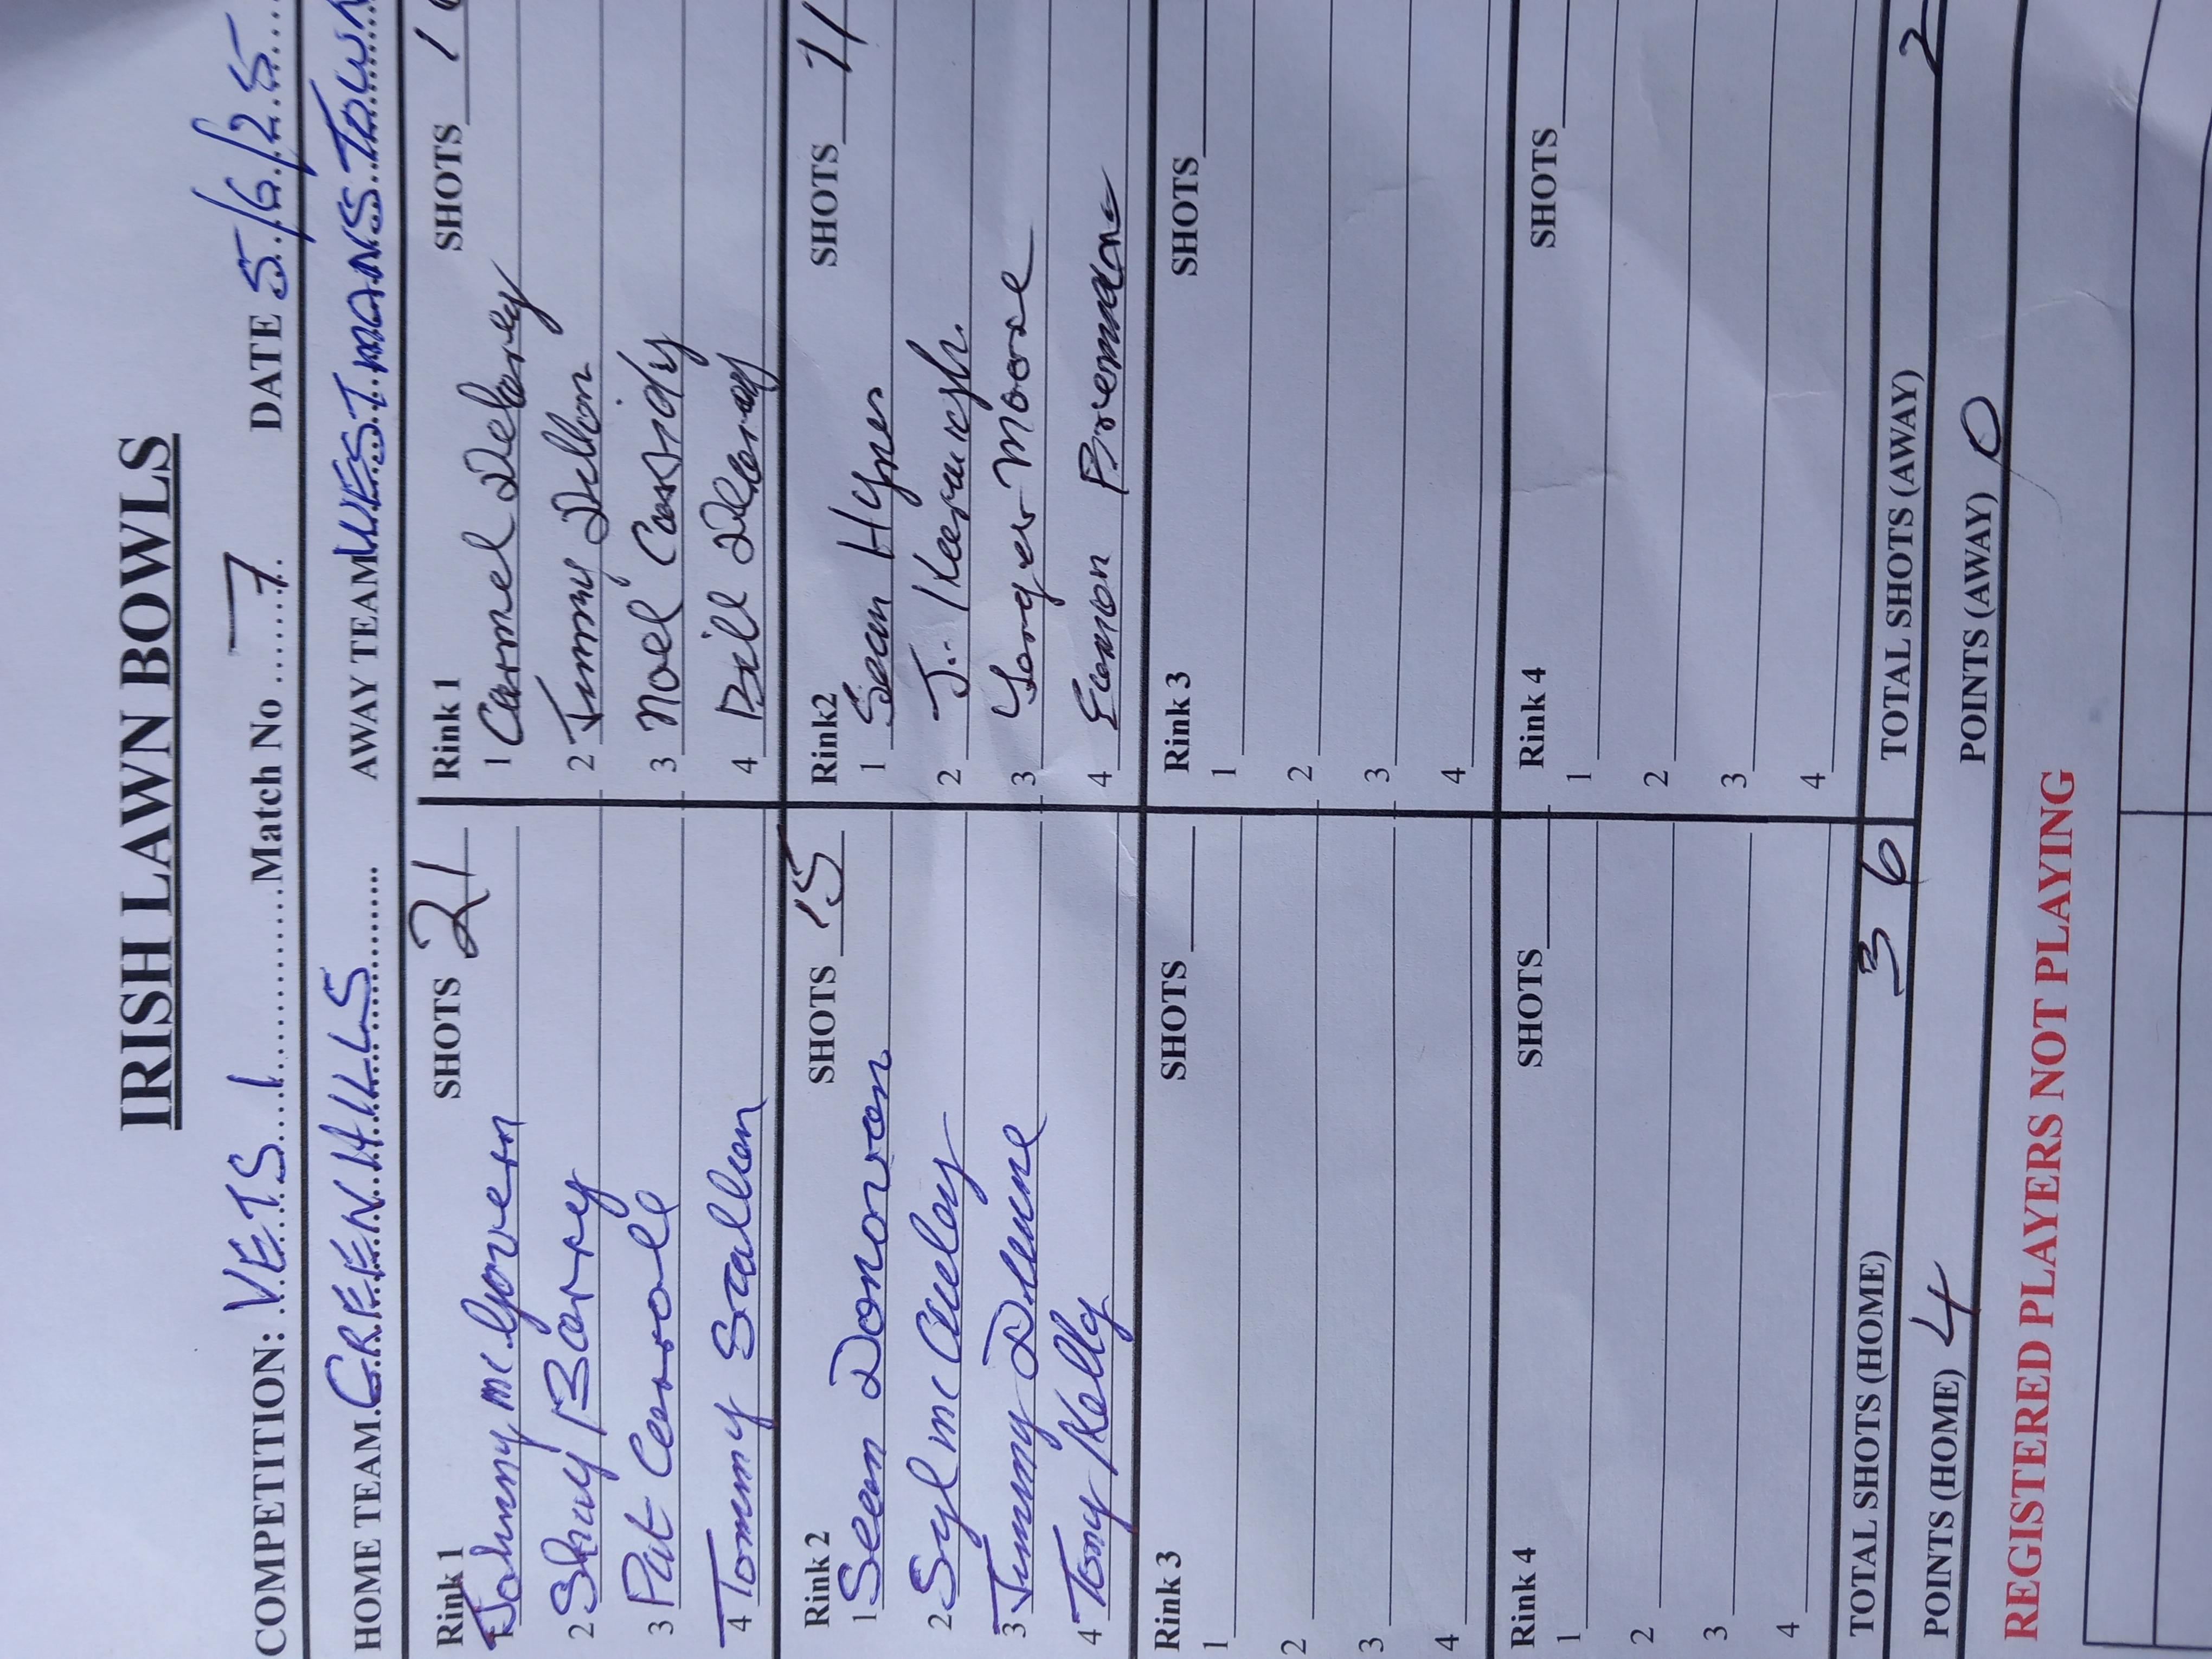 IRISH LAWN BOWLS
COMPETITION: VETS 1 Match No 7 DATE 5/6/25
HOME TEAM GREENHILLS AWAY TEAM WESTMANSTOWN
Rink 1 SHOTS 21
1 Johnny McGovern
2 Shay Barry
3 Pat Carroll
4 Tommy Scallan
Rink 1 SHOTS
1 Carmel Delaney
2 Jimmy Dillon
3 Noel Cassidy
4 Bill Delaney
Rink 2 SHOTS 15
1 Sean Donovan
2 Syl McAuley
3 Jimmy Dunne
4 Tony Kelly
Rink2 SHOTS 11
1 Sean Hynes
2 J. Kavanagh
3 Moore
4 Eamon
Rink 3 SHOTS
1
2
3
4
Rink 3 SHOTS
1
2
3
4
Rink 4 SHOTS
1
2
3
4
Rink 4 SHOTS
1
2
3
4
TOTAL SHOTS (HOME) 36 TOTAL SHOTS (AWAY) 2
POINTS (HOME) 4 POINTS (AWAY) 0
REGISTERED PLAYERS NOT PLAYING